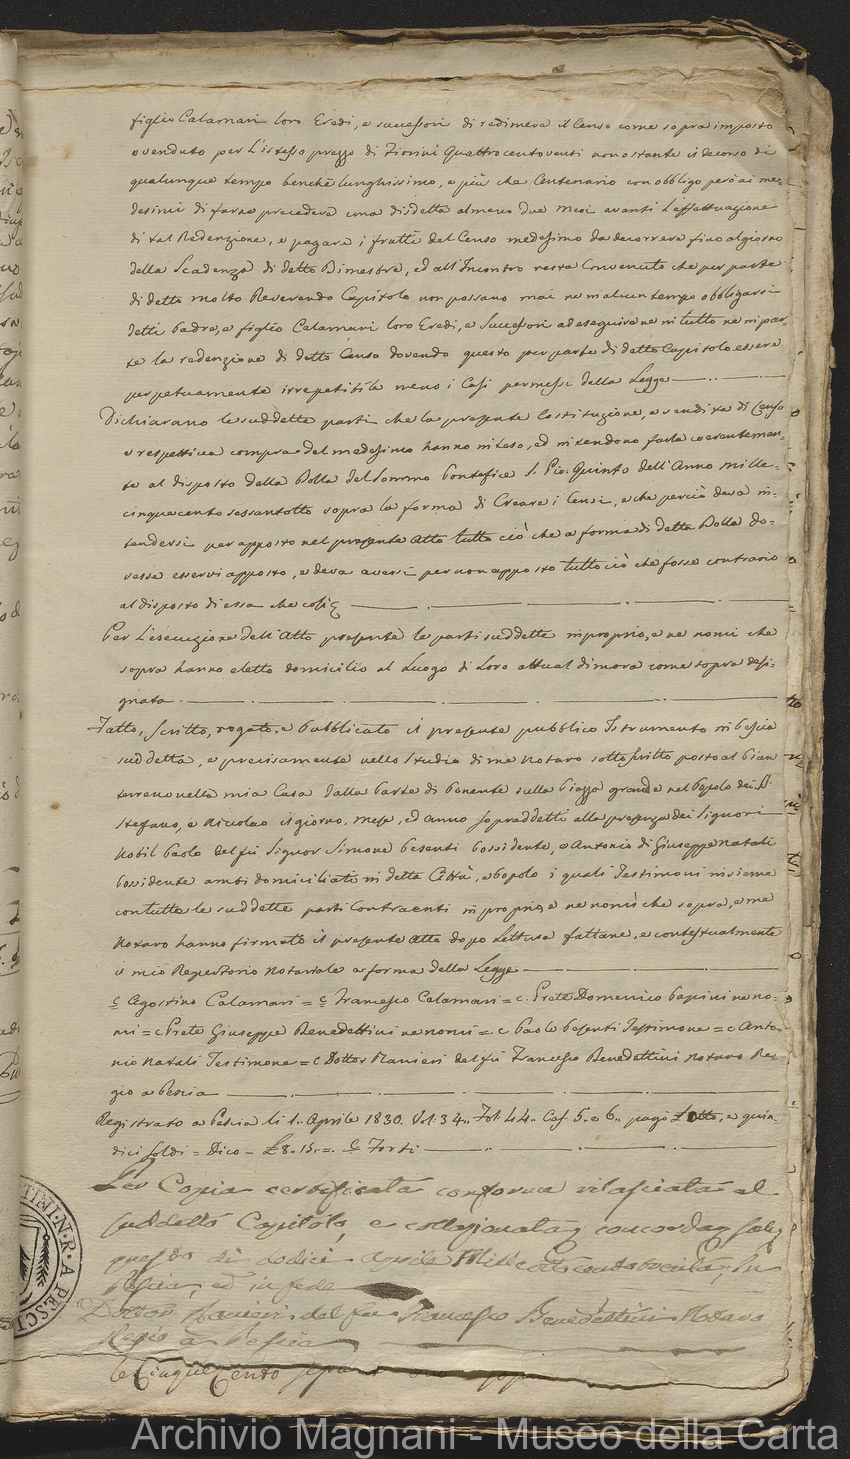 figlio Calamari loro Eredi, e successori di redimere il Censo come sopra imposto
e venduto per l'istesso prezzo di Fiorini Quattrocentoventi non ostante il decorso di
qualunque tempo benchè lunghissimo, e più che Centenario con obbligo però ai me-
desimi di farne precedere una disdetta almeno due Mesi avanti l'effettuazione
di tal Redenzione, e pagare i frutti del Censo medesimo da decorrere fino al giorno
della Scadenza di detto Bimestre, ed all'Incontro resta Convenuto che per parte
di detto molto Reverendo Capitolo non possano mai ne in alcun tempo obbligarsi
detti Padre, e figlio Calamari loro Eredi, e Successori ad eseguire ne in tutto ne in par-
te la redenzione di detto Censo dovendo questo per parte di detto Capitolo essere
perpetuamente irrepetibile meno i Casi permessi dalla Legge
Dichiarano le suddette parti che la presente Costituzione, e vendita di Censo
e respettiva compra del medesimo hanno inteso, ed intendono farla coerentemen-
te al disposto della Bolla del Sommo Pontefice S. Pio Quinto dell'Anno mille-
cinquecento sessantotto sopra la forma di Creare i Censi, e che perciò deva in-
tendersi per apposto nel presente Atto tutto ciò che a forma di detta Bolla do-
vesse esservi apposto, e deva aversi per non apposto tutto ciò che fosse contrario
al disposto di essa che così
Per l'esecuzione dell'Atto presente le parti suddette in proprio, e ne nomi che
sopra hanno eletto domicilio al Luogo di Loro attual dimora come sopra desi-
gnata
Fatto, scritto, rogato, e pubblicato il presente pubblico Istrumento in Pescia
suddetta, e precisamente nello Studio di me Notaro sottoscritto posto al Pian
terreno nella mia Casa dalla Parte di Ponente sulla Piazza grande nel Popolo dei SS.
Stefano, e Niccolao il giorno, mese, ed anno sopraddetti alla presenza dei Signori
Nobil Paolo del fù Signor Simone Pesenti Possidente, e Antonio di Giuseppe Natali
Possidente ambi domiciliati in detta Città, e Popolo i quali Testimoni insieme
con tutte le suddette parti Contraenti in proprio, e ne nomi che sopra, e me
Notaro hanno firmato il presente Atto dopo Lettura fattane, e contestualmente
il mio Repertorio Notariale a forma della Legge
C Agostino Calamari = C Francesco Calamari = C. Prete Domenico Papini ne no-
mi = C Prete Giuseppe Benedettini ne nomi = C Paolo Pesenti Testimone = C Anto-
nio Natali Testimone = C Dottor Ranieri del fù Francesco Benedettini Notaro Re-
gio a Pescia
Registrato a Pescia li 1. Aprile 1830. Vol: 34. Fol: 44. Cas. 5. e 6. pagò L otto, e quin-
dici soldi = Dico = L 8. 15. = C Forti
Per Copia certificata conforme rilasciata al
suddetto Capitolo, e collazionata concorda
questo di dodici Aprile Mille ottocento trenta, In
Pescia, ed in fede
Dottor Ranieri del fu Francesco Benedettini Notaro
Regio a Pescia
Cinque Cento
Archivio Magnani - Museo della Carta